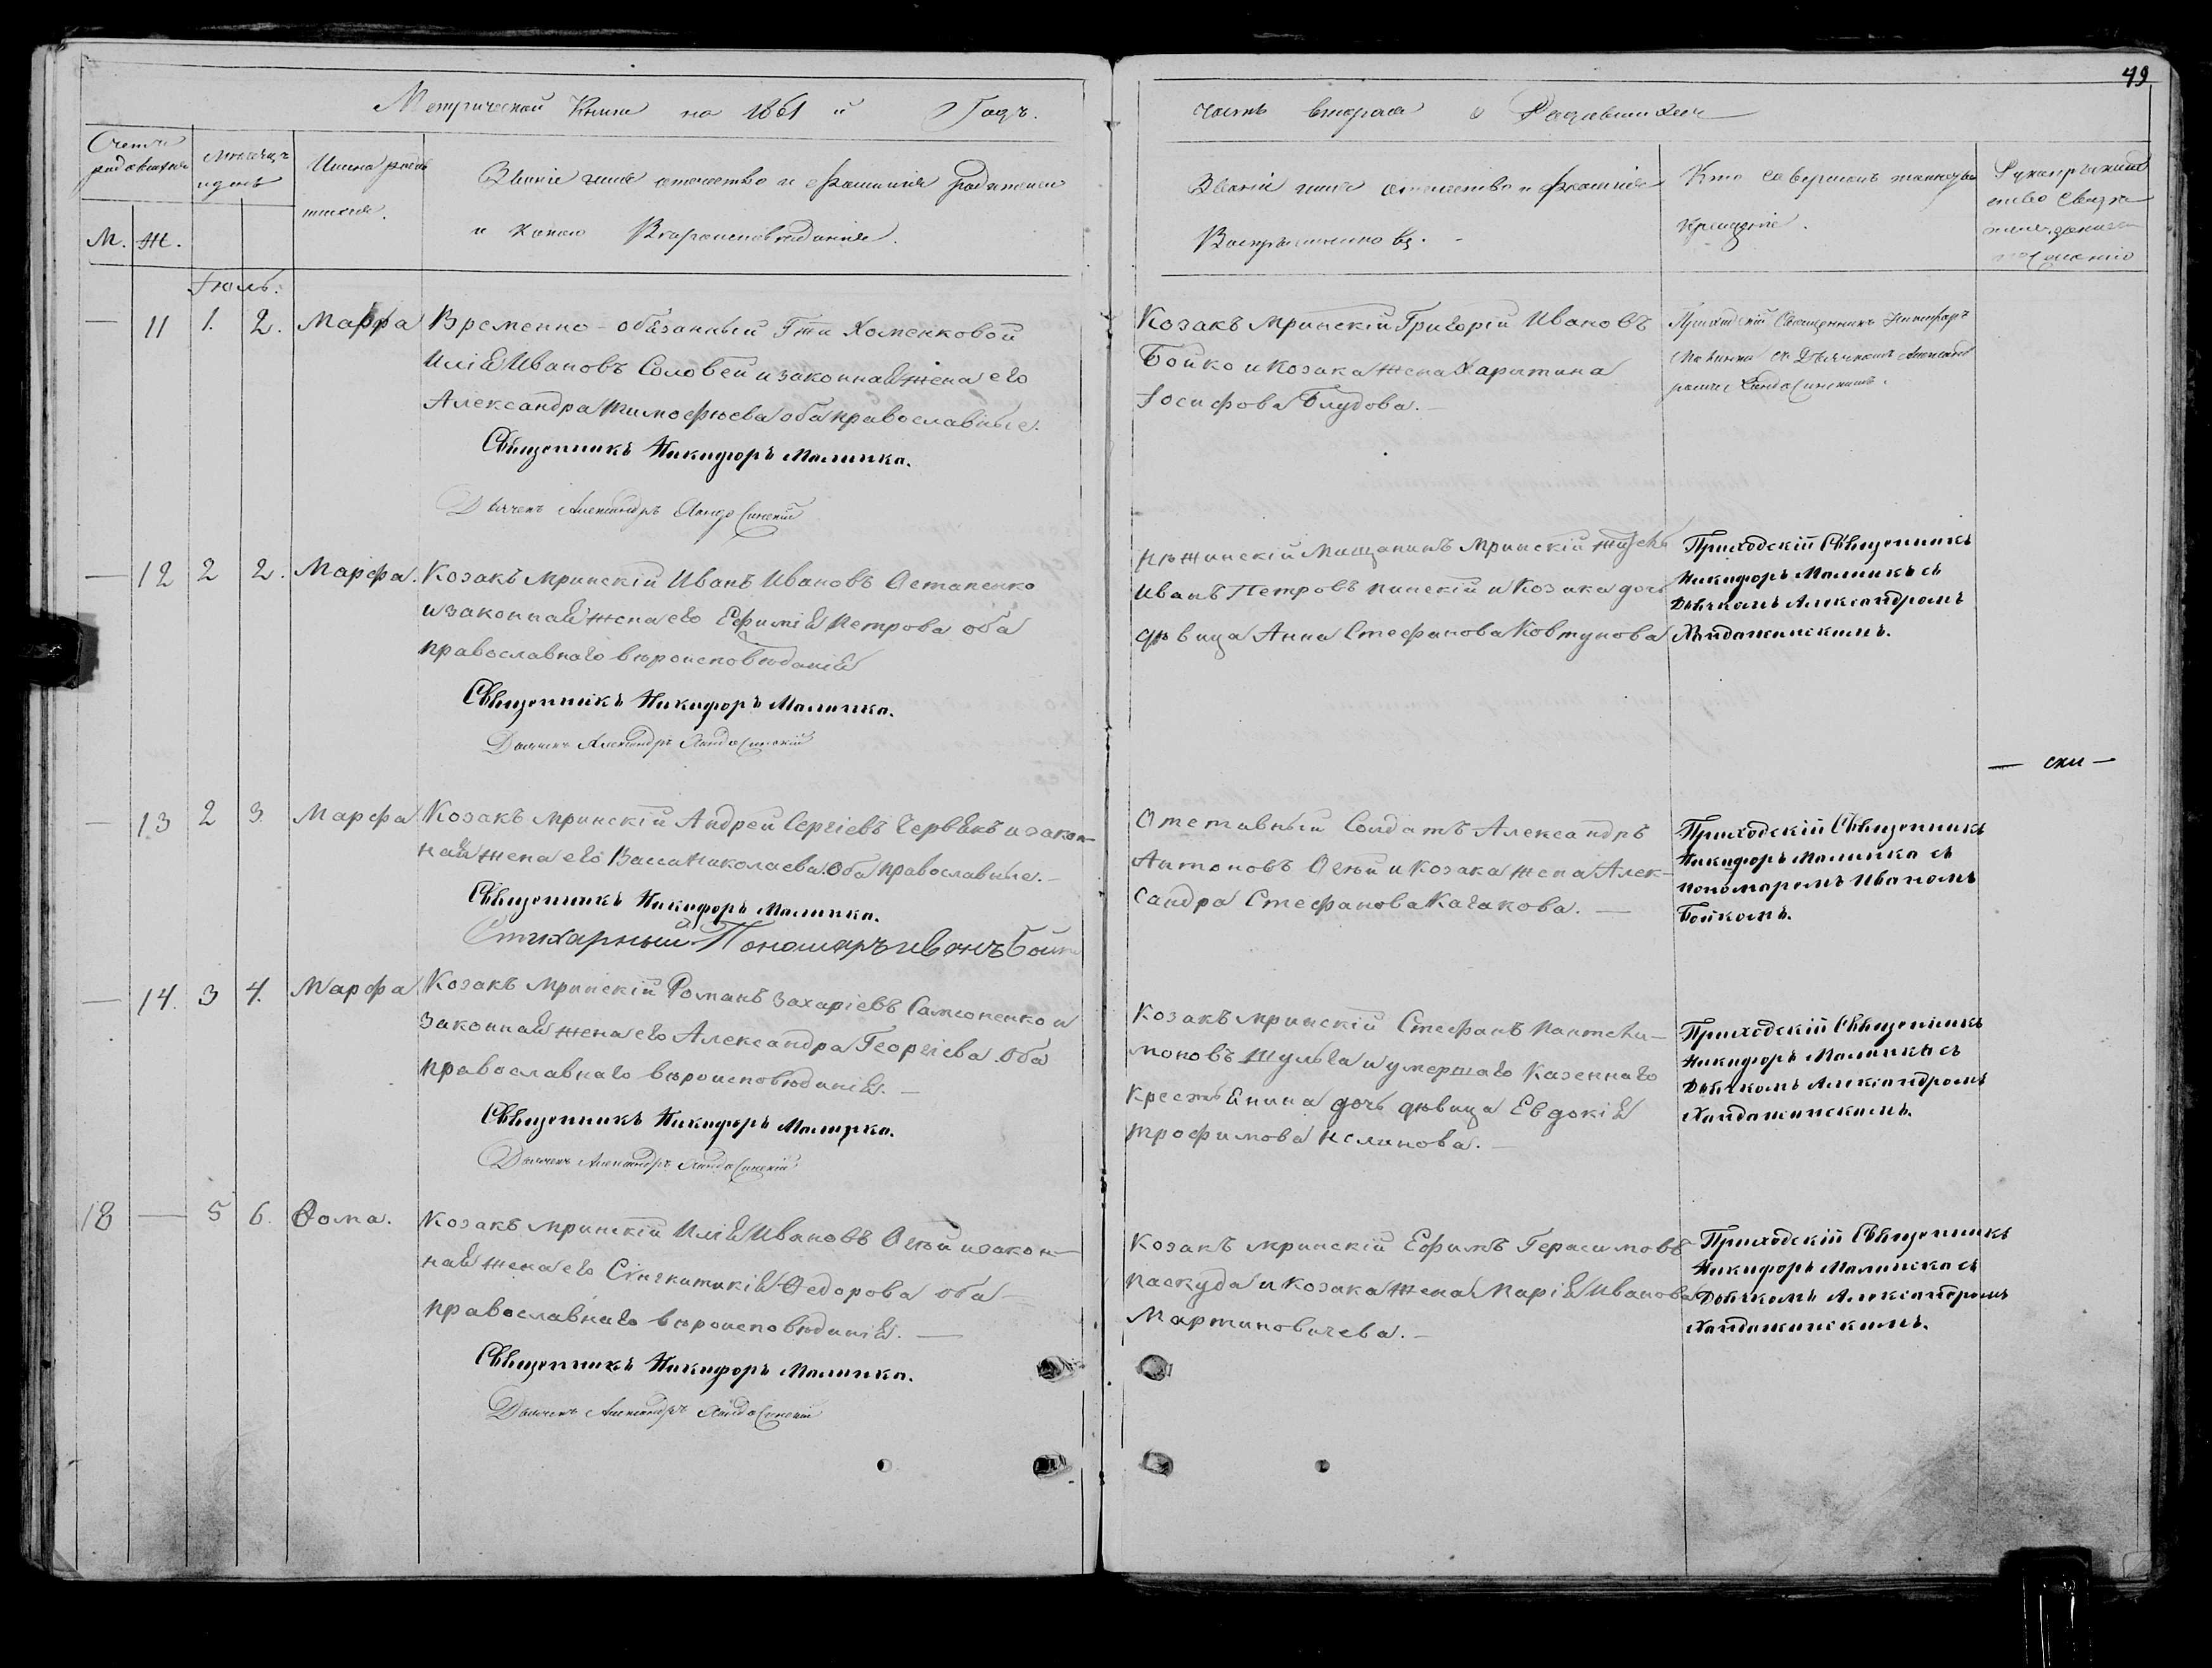 49
Метрической Книги на 1861 й Годъ.
часть вторая о Родившихся
Счетъ родившихся
М. Ж.
Мѣсяцъ и день
Имена родившихся.
Званіе имя отечество и фамилія родителей
и какого Вѣроисповѣданія.
Званіе имя отечество и фамилія
Воспріемниковъ.
Кто совершалъ таинство
крещенія.
Іюль.
— 11 1. 2. Марфа
Временно-обязанный Гжи Хоменковой
Илія Ивановъ Соловей и законная жена его
Александра Тимофѣева оба православные.
Священникъ Никифоръ Малинка.
Дьячекъ Александръ
Козакъ Мринскій Григорій Ивановъ
Бойко и козака жена Харитина
Іосифова Блудова.
Приходскій Священникъ Никифоръ
Малинка съ Дьячкомъ
— 12 2 2. Марфа.
Козакъ Мринскій Иванъ Ивановъ Остапенко
и законная жена его Ефимія Петрова оба
православнаго вѣроисповѣданія
Священникъ Никифоръ Малинка.
Дьячекъ Александръ
Нѣжинскій Мищанинъ Мринскій житель
Иванъ Петровъ Пинскій и Козака дочь
дѣвица Анна Стефанова Ковтунова
Приходскій Священникъ
Никифоръ Малинка съ
Дьячкомъ Александромъ
— 13 2 3. Марфа
Козакъ Мринскій Андрей Сергіевъ Червякъ и закон-
ная жена его Васса Николаева оба православные.—
Священникъ Никифоръ Малинка.
Стихарный Пономаръ Иванъ Бойко
Отставный Солдатъ Александръ
Антоновъ Огѣй и козака жена Алек-
сандра Стефанова Кагакова. —
Приходскій Священникъ
Никифоръ Малинка съ
пономаремъ Иваномъ
Бойкомъ.
— 14. 3 4. Марфа
Козакъ Мринскій Романъ Захаріевъ Самсоненко и
законная жена его Александра Георгіева оба
православнаго вѣроисповѣданія. —
Священникъ Никифоръ Малинка.
Дьячекъ Александръ
Козакъ Мринскій Стефанъ Пантели-
моновъ Шульга и умершаго Казеннаго
Крестьянина дочь дѣвица Евдокія
Трофимова —
Приходскій Священникъ
Никифоръ Малинка съ
Дьячкомъ Александромъ
18 — 5 6. Ѳома.
Козакъ Мринскій Илія Ивановъ Огѣй и закон-
ная жена его Синклитикія Ѳедорова оба
православнаго вѣроисповѣданія. —
Священникъ Никифоръ Малинка.
Дьячекъ Александръ
Козакъ Мринскій Ефимъ Герасимовъ
Паскуда и козака жена Марія Иванова
Мартиновичева. —
Приходскій Священникъ
Никифоръ Малинка съ
Дьячкомъ Александромъ